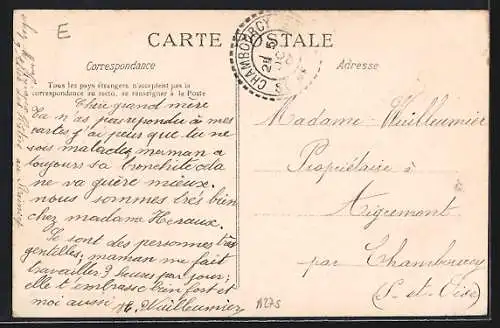 E
CARTE POSTALE
CHAMBOURCY
25
Correspondance
Adresse
Tous les pays étrangers n'acceptent pas la
correspondance au recto, se renseigner à la Poste
Chère grand mère
Tu n'as pas repondu à mes
cartes j'ai peur que tu ne
sois malade, maman a
toujours sa bronchite cela
ne va guère mieux.
nous sommes très bien
chez madame Heraux.
Se sont des personnes très
gentilles; maman me fait
travailler 3 heures par jour;
elle t'embrasse bien fort et
moi aussi H. Vuilleumier
Madame Vuilleumier
Propriétaire à
Aigremont
par Chambourcy
(S-et-Oise)